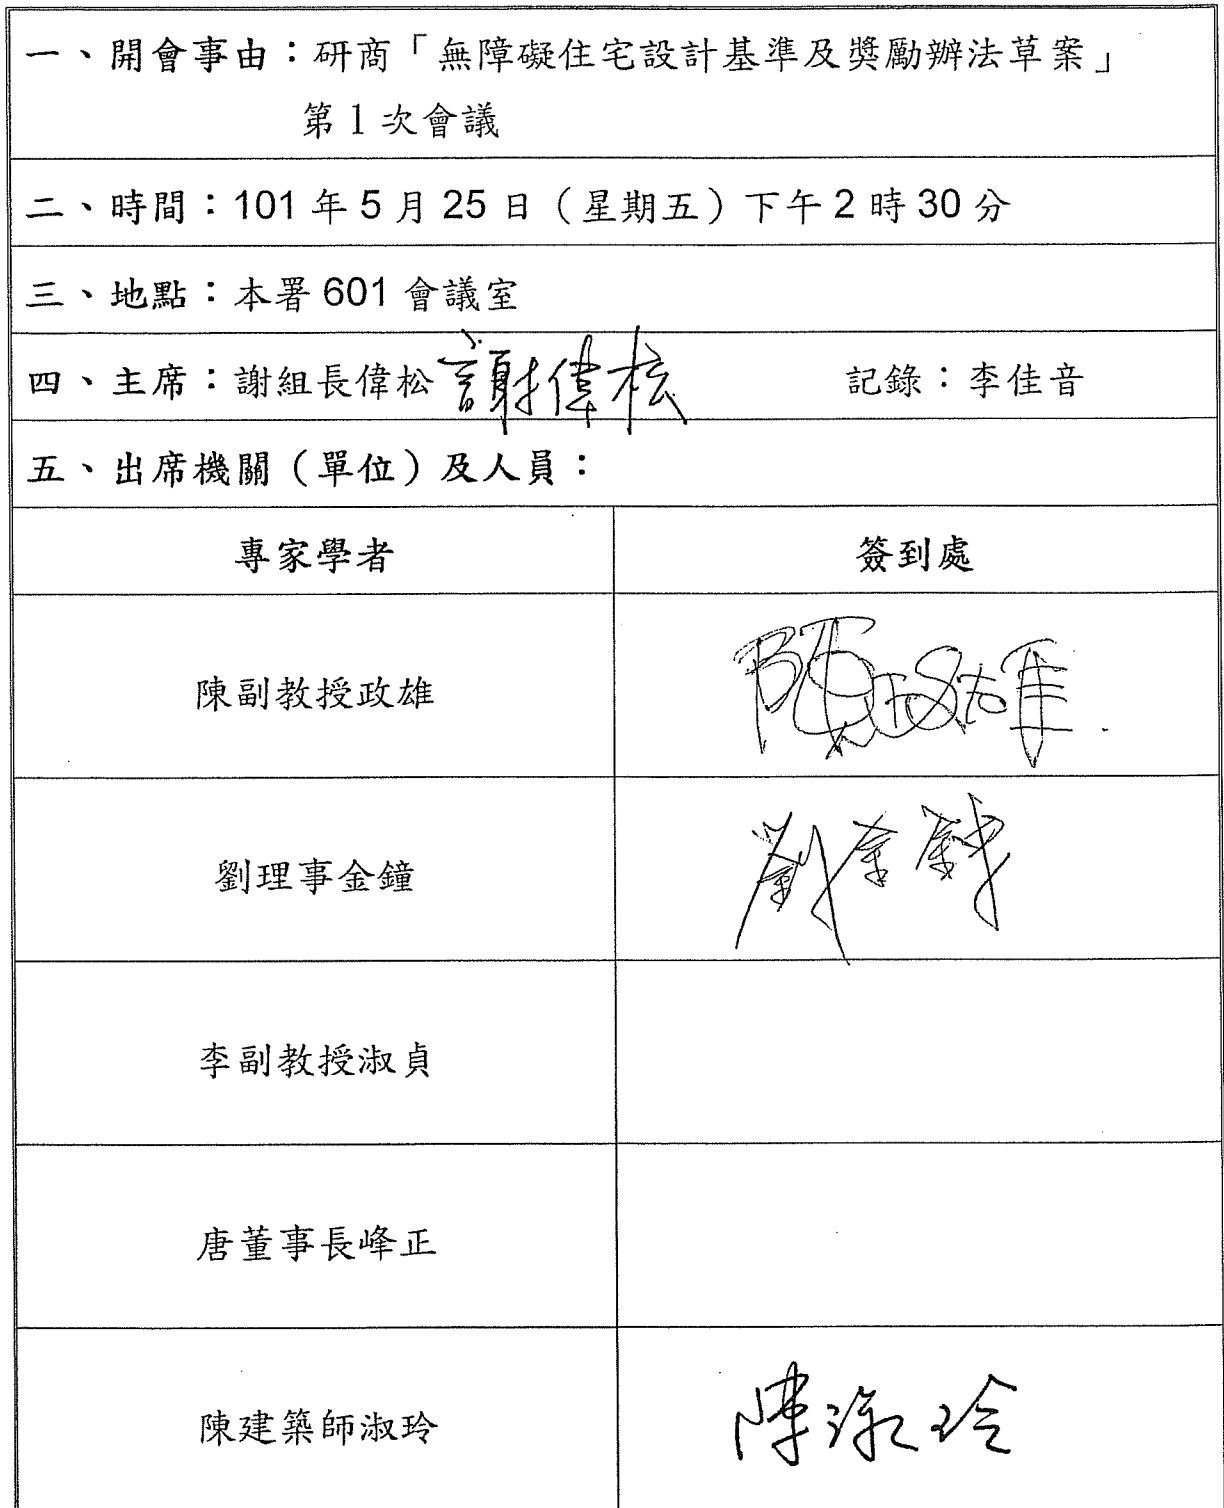 一、開會事由：研商「無障礙住宅設計基準及獎勵辦法草案」
第1次會議
二、時間：101年5月25日（星期五）下午2時30分
三、地點：本署601會議室
四、主席：謝組長偉松 謝偉松 記錄：李佳音
五、出席機關（單位）及人員：
專家學者 簽到處
陳副教授政雄 陳政雄
劉理事金鐘 劉金鐘
李副教授淑貞
唐董事長峰正
陳建築師淑玲 陳淑玲